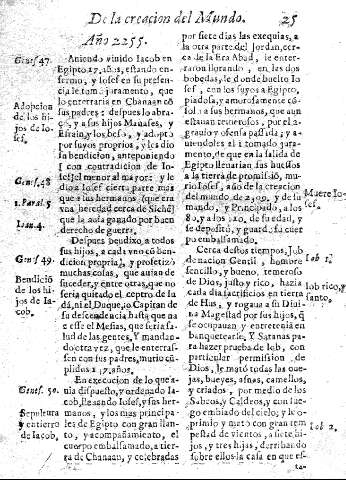 De la creacion del Mundo.
25
Año 2255.
Genes. 47.
Aniendo viuido Iacob en
Egipto 17. años, estando en-
fermo, y Iosef en su presen-
cia le tomò juramento, que
lo enterraria en Chanaan cō
sus padres: despues lo abra-
çò, y a sus hijos Manases, y
Efrain, y los besò, y adoptò
por suyos proprios, y les dio
su bendicion, anteponiendo
con contradicion de Io-
sef al menor al mayor: y le
dio a Iosef cierta parte mas
que a sus hermanos (que era
vna heredad cerca de Sichē)
que la auia ganado por buen
derecho de guerra.
Adopcion
de los hi-
jos de Io-
sef.
Genes. 48
1. Paral. 5
Ioan. 4.
Despues bendixo a todos
sus hijos, a cada vno cō ben-
dicion propria, y profetizò
muchas cosas, que auian de
suceder, y entre otras, que no
seria quitado el ceptro de Iu-
dà, ni el Duque, o Capitan de
su descendencia hasta que na-
ciesse el Mesias, que seria sa-
lud de las gentes. Y mandan-
do otra vez, que le enterras-
sen con sus padres, murio cū-
plidos 147. años.
Genes. 49.
Bendiciō
de los hi-
jos de Ia-
cob.
En execucion de lo que a-
uia dispuesto, y ordenado Ia-
cob, lleuando Iosef, y sus her-
manos, y los mas principa-
les de Egipto con gran llan-
to, y acompañamiento, el
cuerpo embalsamado, a tie-
rra de Chanaan, y celebradas
Genes. 50.
Sepultura
y entierro
de Iacob.
por siete dias las exequias, a
la otra parte del Jordan, cer-
ca de la Era Abad, le ente-
rraron llorando, en las dos
bobedas, de donde buelto Io-
sef, con los suyos a Egipto,
piadosa, y amorosamente cō-
solò a sus hermanos, que aun
estauan temerosos, por el a-
grauio y ofensa passada; y a-
uiendoles al tomado juramen-
to, de que en la salida de
Egipto lleuarian sus huessos
a la tierra de promission, mu-
rio Iosef, año de la creacion
del mundo de 2309. y de su
mundo, y Principado, a los
80. y a los 110. de su edad, y
se depositò, y guardò su cuer-
po embalsamado.
Muere Io-
sef.
Cerca destos tiempos, Iob
de nacion Gentil, hombre
sencillo, y bueno, temeroso
de Dios, justo y rico, hazia
cada dia sacrificios en tierra
de Hus, y rogaua a su Diui-
na Magestad por sus hijos, q̄
se ocupauan y entretenian en
banquetearse. Y Satanas pa-
ra hazer prueba de Iob, con
particular permission de
Dios, le matò todas las oue-
jas, bueyes, asnos, camellos,
y criados, por medio de los
Sabeos, y Caldeos, y con fue-
go embiado del cielo; y le o-
primio y matò con gran tem-
pestad de vientos, a siete hi-
jos, y tres hijas, derribando
sobre ellos la casa en que es-
ta-
Iob 1.
Iob rico, y
santo.
Iob 2.